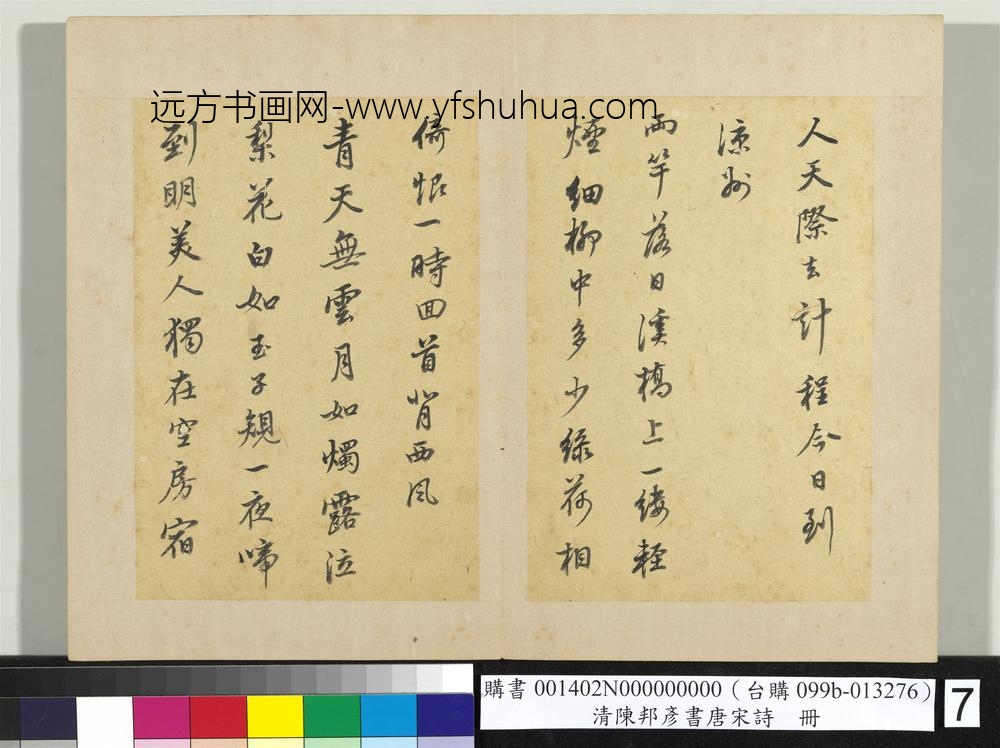 远方书画网-www.yfshuhua.com
人天際去計程今日到
涼州
兩竿落日溪橋上一縷輕
煙細柳中多少綠荷相
倚恨一時回首背西風
青天無雲月如燭露泣
梨花白如玉子規一夜啼
到明美人獨在空房宿
購書 001402N000000000（台購 099b-013276）
清陳邦彥書唐宋詩 冊
7